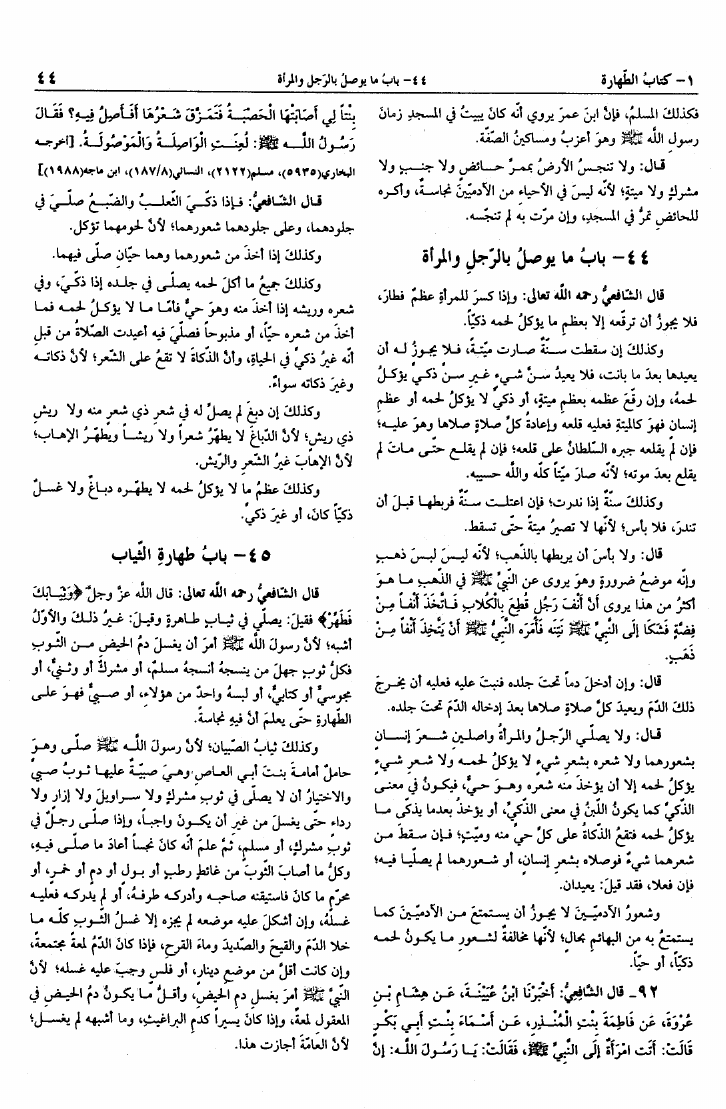 ١- كتابُ الطّهارة
٤٤- بابُ ما يوصلُ بالرّجل والمرأة
٤٤
فكذلكَ المسلمُ، فإنَّ ابنَ عمرَ يروي أنّه كانَ يبيتُ في المسجدِ زمانَ
رسولِ الله ﷺ وهوَ أعزبُ ومساكينُ الصّفّة.
قال: ولا تنجسُ الأرضُ بممرِّ حائضٍ ولا جنبٍ ولا
مشركٍ ولا ميتةٍ؛ لأنّه ليسَ في الأحياءِ من الآدميّينَ نجاسةٌ، وأكره
للحائضِ تمرُّ في المسجدِ، وإن مرّت به لم تنجّسه.
٤٤- بابُ ما يوصلُ بالرّجلِ والمرأة
قال الشافعيُّ رحمه الله تعالى: وإذا كسرَ للمرأةِ عظمٌ فطارَ،
فلا يجوزُ أن ترقّعه إلا بعظمِ ما يؤكلُ لحمه ذكيّاً.
وكذلكَ إن سقطت سنّةٌ صارت ميّتةً، فلا يجوزُ له أن
يعيدها بعدَ ما بانت، فلا يعيدُ سنَّ شيءٍ غيرِ سنِّ ذكيٍّ يؤكلُ
لحمهُ، وإن رقّعَ عظمه بعظمِ ميتةٍ، أو ذكيٍّ لا يؤكلُ لحمه أو عظمِ
إنسان فهوَ كالميتةِ فعليه قلعه وإعادةُ كلِّ صلاةٍ صلاها وهوَ عليه؛
فإن لم يقلعه جبره السّلطانُ على قلعه؛ فإن لم يقلع حتّى ماتَ لم
يقلع بعدَ موته؛ لأنّه صارَ ميّتاً كلّه والله حسيبه.
وكذلكَ سنّةٌ إذا ندرت؛ فإن اعتلت سنّةٌ فربطها قبلَ أن
تندرَ، فلا بأس؛ لأنّها لا تصيرُ ميتةً حتّى تسقط.
قال: ولا بأسَ أن يربطها بالذّهب؛ لأنّه ليسَ لبسَ ذهبٍ
وإنّه موضعُ ضرورةٍ وهوَ يروى عن النّبيِّ ﷺ في الذّهبِ ما هوَ
أكثرُ من هذا يروى أَنَّ أَنْفَ رَجُلٍ قُطِعَ بِالْكُلَابِ فَاتَّخَذَ أَنْفاً مِنْ
فِضَّةٍ فَشَكَا إلَى النَّبِيِّ ﷺ نَتِنَه فَأَمَرَه النَّبِيُّ ﷺ أَنْ يَتَّخِذَ أَنْفاً مِنْ
ذَهَبٍ.
قال: وإن أدخلَ دماً تحتَ جلده فنبتَ عليه فعليه أن يخرجَ
ذلكَ الدّمَ ويعيدَ كلَّ صلاةٍ صلاها بعدَ إدخاله الدّمَ تحتَ جلده.
قال: ولا يصلّي الرّجلُ والمرأةُ واصلينِ شعرَ إنسانٍ
بشعورهما ولا شعره بشعرِ شيءٍ لا يؤكلُ لحمه ولا شعرِ شيءٍ
يؤكلُ لحمه إلا أن يؤخذَ منه شعره وهوَ حيٌّ، فيكونُ في معنى
الذّكيِّ كما يكونُ اللّبنُ في معنى الذّكيِّ، أو يؤخذُ بعدما يذكّى ما
يؤكلُ لحمه فتقعُ الذّكاةُ على كلِّ حيٍّ منه وميّتٍ؛ فإن سقطَ من
شعرهما شيءٌ فوصلاه بشعرِ إنسانٍ، أو شعورهما لم يصلّيا فيه؛
فإن فعلا، فقد قيلَ: يعيدان.
وشعورُ الآدميّينَ لا يجوزُ أن يستمتعَ من الآدميّينَ كما
يستمتعُ به من البهائمِ بحالٍ؛ لأنّها مخالفةٌ لشعورِ ما يكونُ لحمه
ذكيّاً، أو حيّاً.
٩٢- قال الشافعيُّ: أَخْبَرَنَا ابْنُ عُيَيْنَةَ، عَن هِشَامِ بْنِ
عُرْوَةَ، عَن فَاطِمَةَ بِنْتِ الْمُنْذِرِ، عَن أَسْمَاءَ بِنْتِ أَبِي بَكْرٍ
قَالَتْ: أَتَت امْرَأَةٌ إلَى النَّبِيِّ ﷺ، فَقَالَتْ: يَا رَسُولَ اللَّه: إنَّ
بِنْتاً لِي أَصَابَتْهَا الْحَصْبَةُ فَتَمَزَّقَ شَعْرُهَا أَفَأَصِلُ فِيهِ؟ فَقَالَ
رَسُولُ اللَّه ﷺ: لُعِنَتِ الْوَاصِلَةُ وَالْمَوْصُولَةُ. [أخرجه
البخاري(٥٩٣٥)، مسلم(٢١٢٢)، النسائي(١٨٧/٨)، ابن ماجه(١٩٨٨)]
قال الشافعيُّ: فإذا ذكّيَ الثّعلبُ والضّبعُ صلّيَ في
جلودهما، وعلى جلودهما شعورهما؛ لأنَّ لحومهما تؤكل.
وكذلكَ إذا أخذَ من شعورهما وهما حيّانِ صلّى فيهما.
وكذلكَ جميعُ ما أكلَ لحمه يصلّى في جلده إذا ذكّيَ، وفي
شعره وريشه إذا أخذَ منه وهوَ حيٌّ فأمّا ما لا يؤكلُ لحمه فما
أخذَ من شعره حيّاً، أو مذبوحاً فصلّيَ فيه أعيدت الصّلاةُ من قبلِ
أنّه غيرُ ذكيٍّ في الحياةِ، وأنَّ الذّكاةَ لا تقعُ على الشّعرِ؛ لأنَّ ذكاته
وغيرَ ذكاته سواءٌ.
وكذلكَ إن دبغَ لم يصلِّ له في شعرِ ذي شعرٍ منه ولا ريشِ
ذي ريشٍ؛ لأنَّ الدّباغَ لا يطهّرُ شعراً ولا ريشاً ويطهّرُ الإهاب؛
لأنَّ الإهابَ غيرُ الشّعرِ والرّيش.
وكذلكَ عظمُ ما لا يؤكلُ لحمه لا يطهّره دباغٌ ولا غسلٌ
ذكيّاً كانَ، أو غيرَ ذكيٍّ.
٤٥- بابُ طهارةِ الثّياب
قال الشافعيُّ رحمه الله تعالى: قال الله عزَّ وجلَّ ﴿وَثِيَابَكَ
فَطَهِّرْ﴾ فقيلَ: يصلّي في ثيابٍ طاهرةٍ وقيلَ: غيرُ ذلكَ والأوّلُ
أشبه؛ لأنَّ رسولَ الله ﷺ أمرَ أن يغسلَ دمُ الحيضِ من الثّوبِ
فكلُّ ثوبٍ جهلَ من ينسجهُ أنسجهُ مسلمٌ، أو مشركٌ أو وثنيٌّ، أو
مجوسيٌّ أو كتابيٌّ، أو لبسهُ واحدٌ من هؤلاءِ، أو صبيٌّ فهوَ على
الطّهارةِ حتّى يعلمَ أنَّ فيهِ نجاسةً.
وكذلكَ ثيابُ الصّبيان؛ لأنَّ رسولَ اللَّه ﷺ صلّى وهوَ
حاملٌ أمامةَ بنتَ أبي العاصِ وهيَ صبيّةٌ عليها ثوبُ صبيٍّ
والاختيارُ أن لا يصلّى في ثوبِ مشركٍ ولا سراويلَ ولا إزارٍ ولا
رداءٍ حتّى يغسلَ من غيرِ أن يكونَ واجباً، وإذا صلّى رجلٌ في
ثوبِ مشركٍ، أو مسلمٍ، ثمَّ علمَ أنّه كانَ نجساً أعادَ ما صلّى فيه،
وكلُّ ما أصابَ الثّوبَ من غائطٍ رطبٍ أو بولٍ أو دمٍ أو خمرٍ، أو
محرّمٍ ما كانَ فاستيقنه صاحبه وأدركه طرفهُ، أو لم يدركه فعليه
غسلهُ، وإن أشكلَ عليه موضعه لم يجزه إلا غسلُ الثّوبِ كلّه ما
خلا الدّمَ والقيحَ والصّديدَ وماءَ القرحِ، فإذا كانَ الدّمُ لمعةً مجتمعةً،
وإن كانت أقلَّ من موضعِ دينارٍ، أو فلسٍ وجبَ عليه غسله؛ لأنَّ
النّبيَّ ﷺ أمرَ بغسلِ دمِ الحيضِ، وأقلُّ ما يكونُ دمُ الحيضِ في
المعقولِ لمعةً، وإذا كانَ يسيراً كدمِ البراغيثِ، وما أشبهه لم يغسل؛
لأنَّ العامّةَ أجازت هذا.